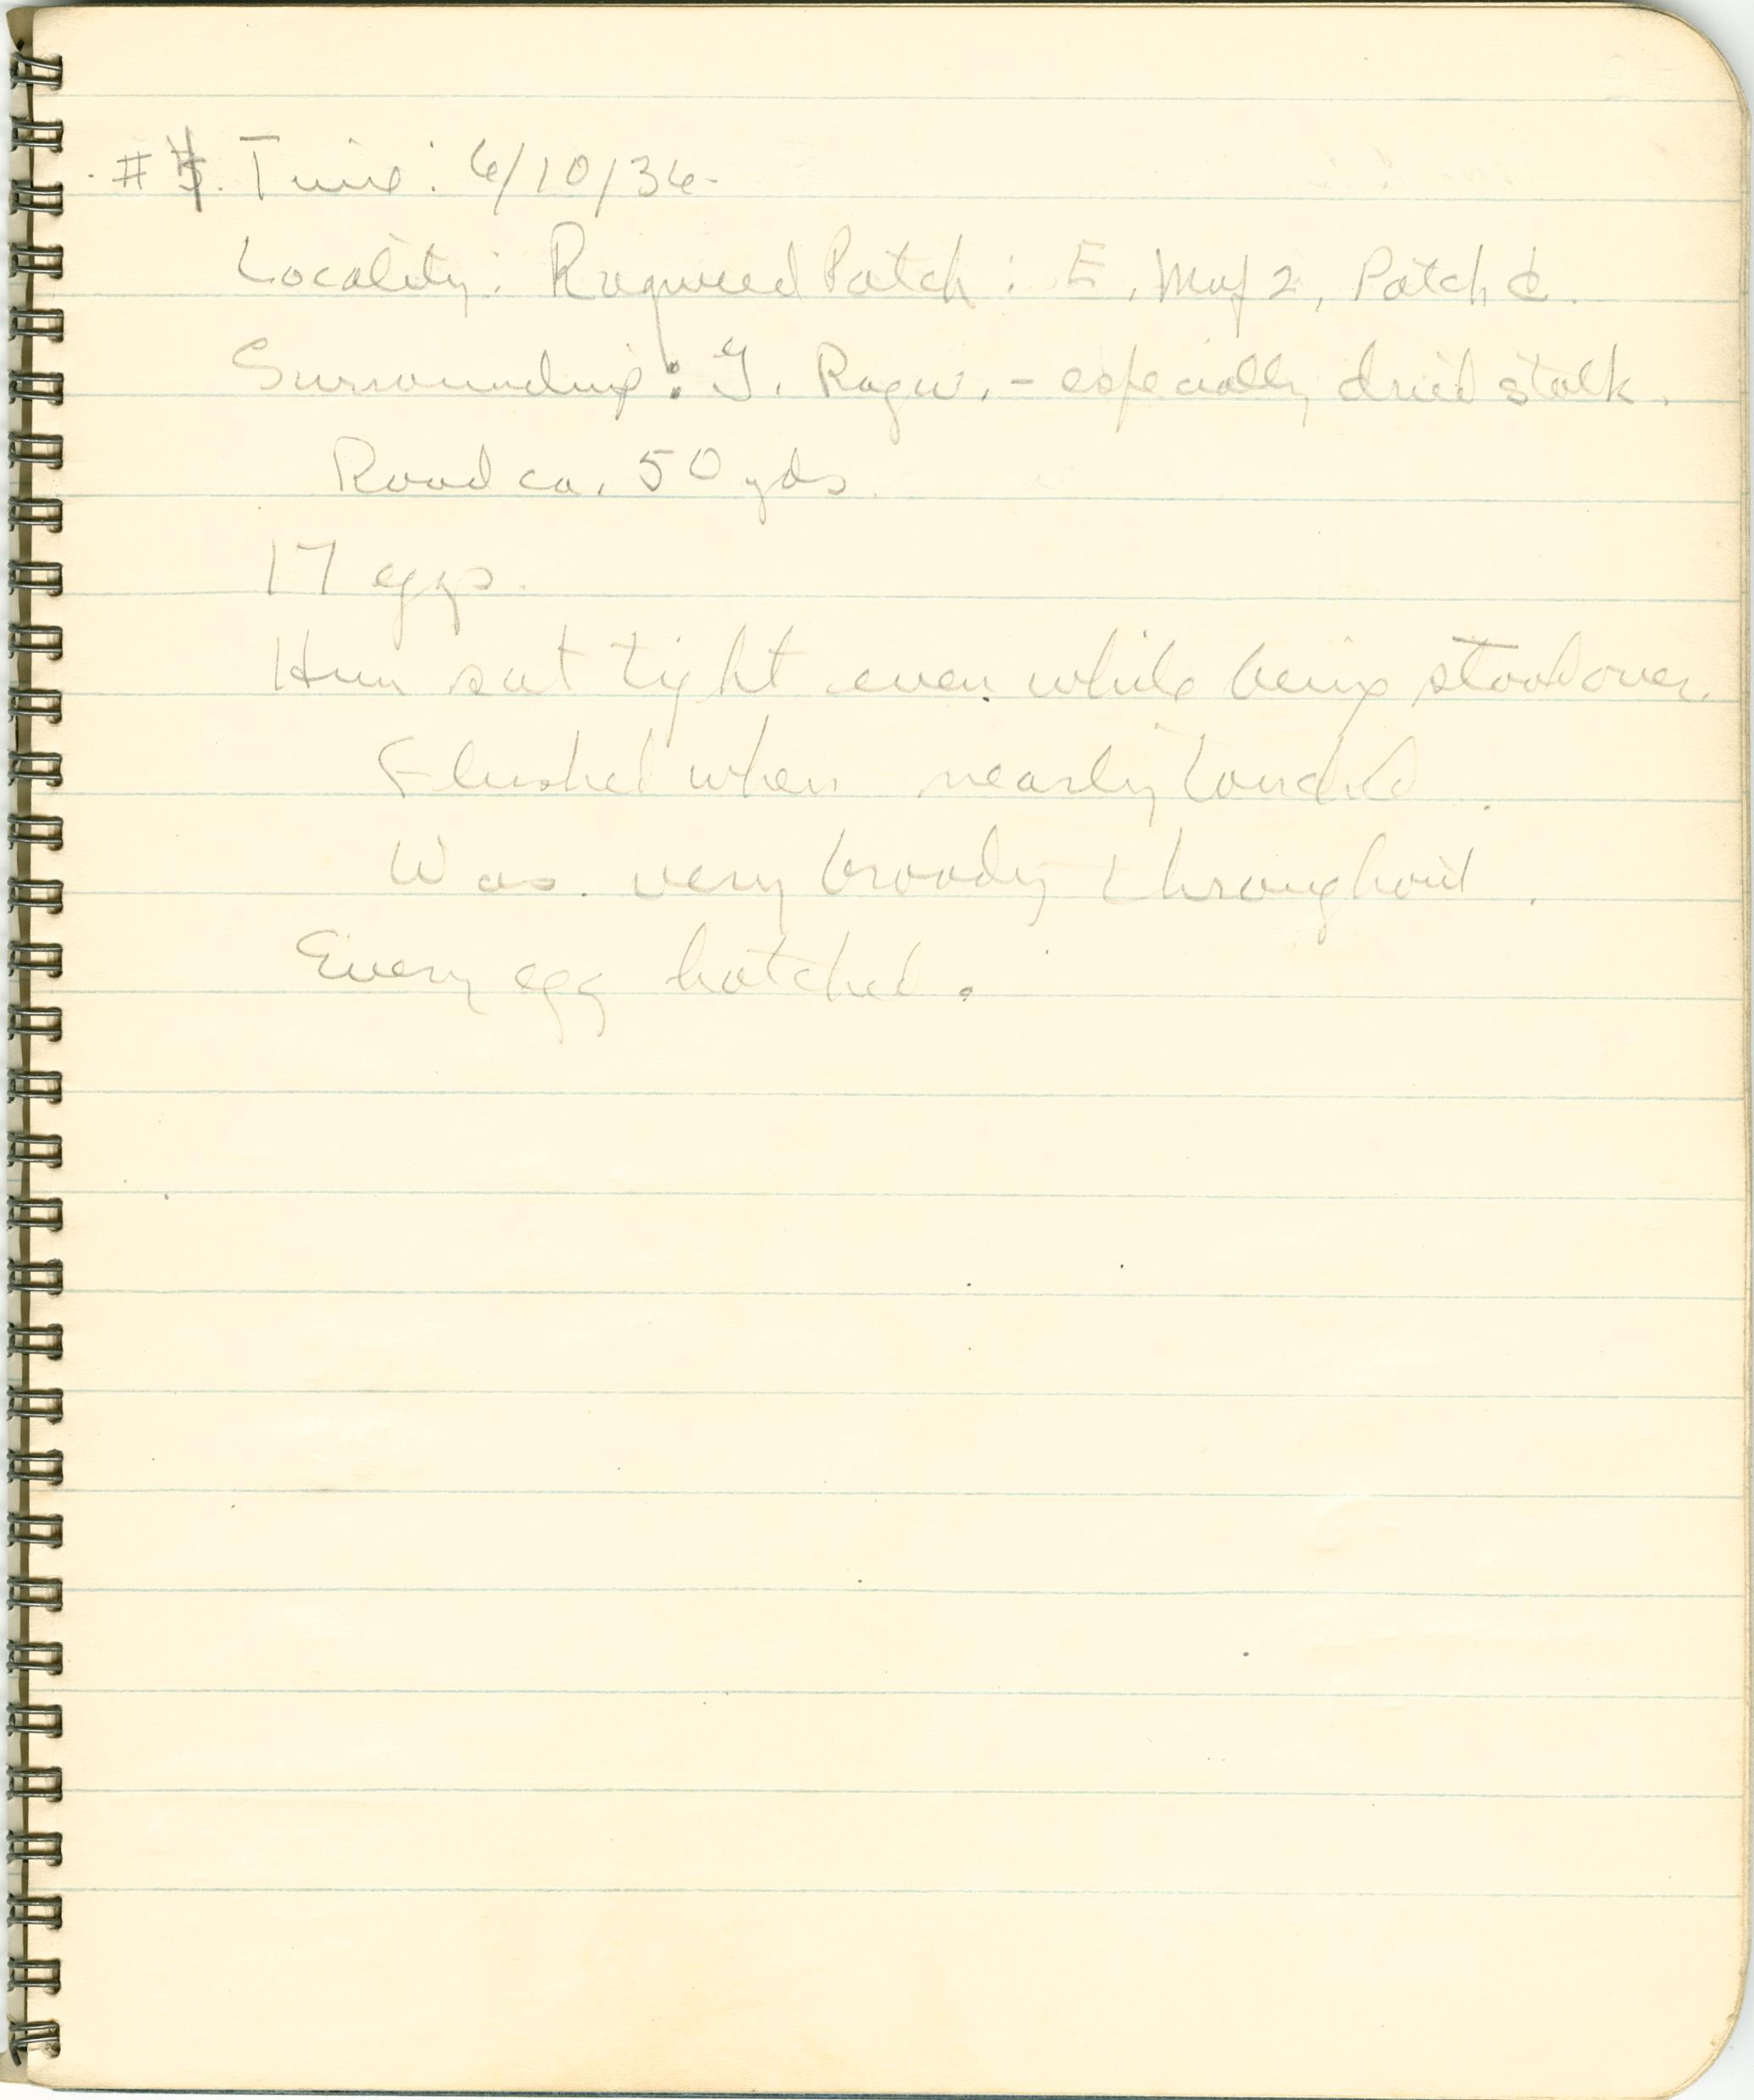 # 4. Time: 6/10/36-
Locality: Ragweed Patch: E, Map 2, Patch C.
Surrounding: G. Ragw. - especially dried stalk.
Road ca. 50 yds.
17 eggs.
Hun sat tight even while being stood over.
Flushed when nearly touched.
Was very broody throughout.
Every egg hatched.